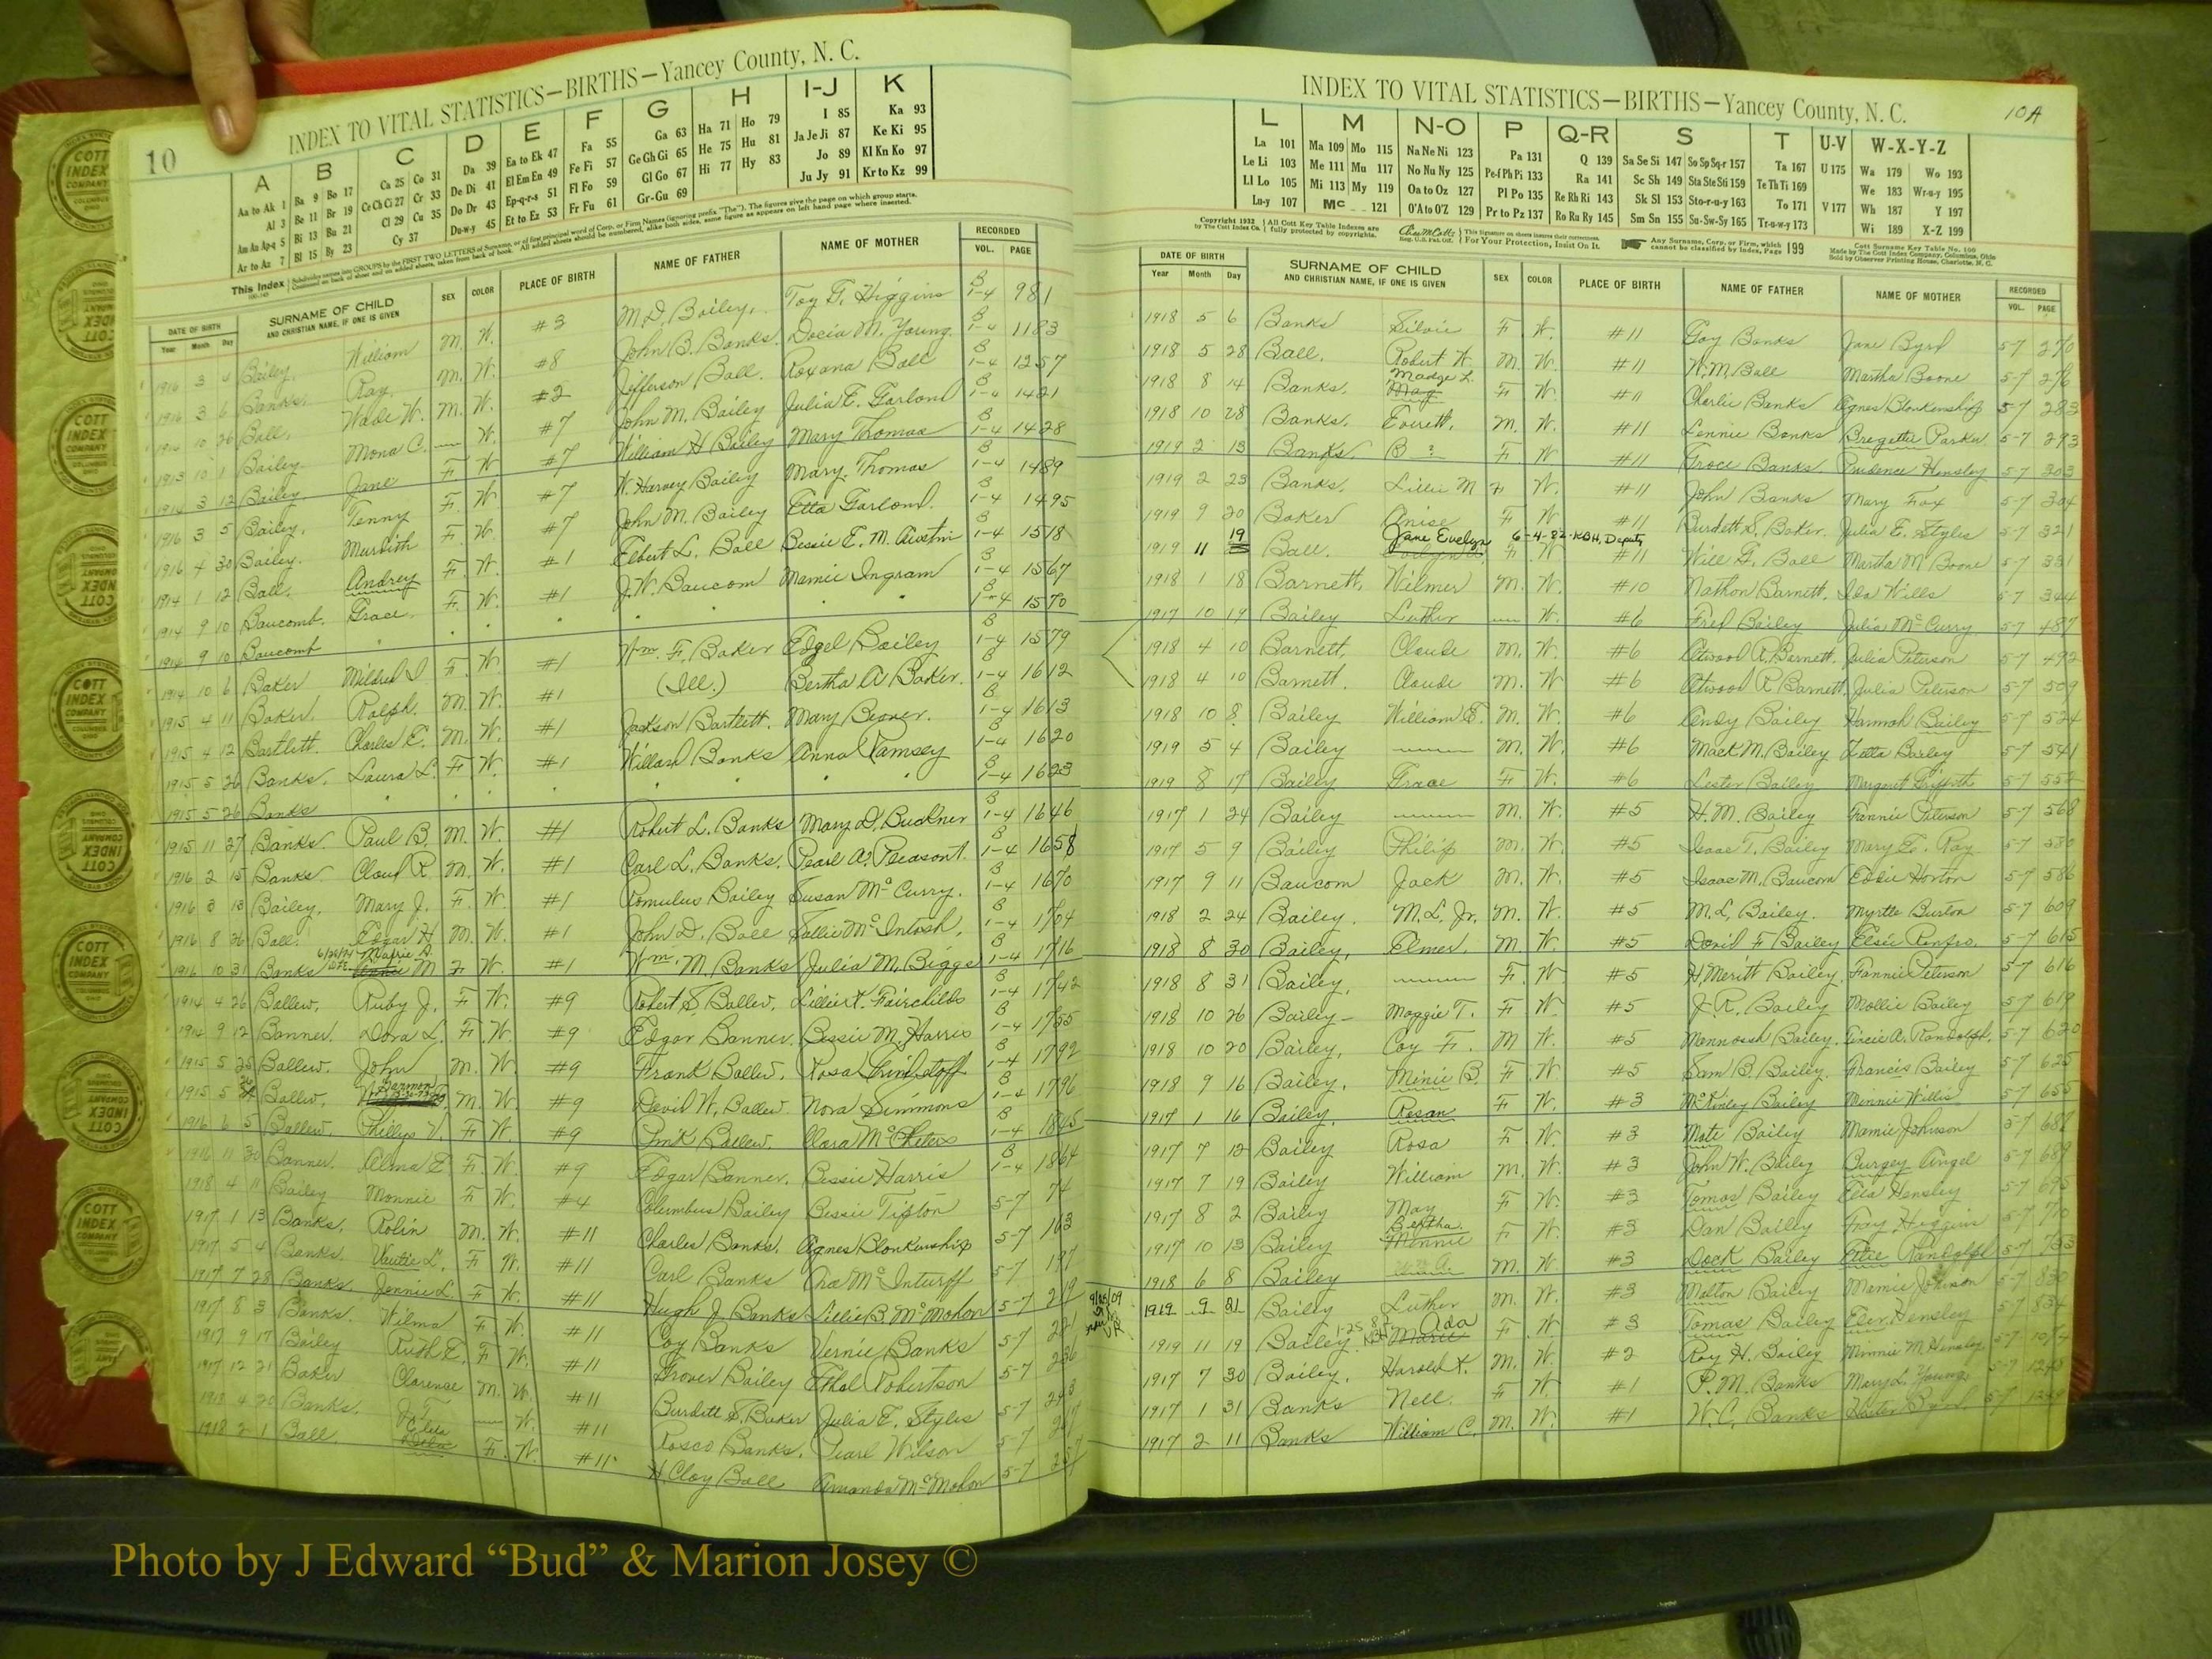 10
INDEX TO VITAL STATISTICS—BIRTHS—Yancey County, N. C.
A B C D E F G H I-J K
Aa to Ak 1 Ba 9 Bo 17 Ca 25 Co 31 Da 39 Ea to Ek 47 Fa 55 Ga 63 Ha 71 Ho 79 I 85 Ka 93
Al 3 Be 11 Br 19 Ce Ch Ci 27 Cr 33 De Di 41 El Em En 49 Fe Fi 57 Ge Gh Gi 65 He 75 Hu 81 Ja Je Ji 87 Ke Ki 95
Am An Ap-q 5 Bi 13 Bu 21 Cl 29 Cu 35 Do Dr 43 Ep-q-r-s 51 Fl Fo 59 Gl Go 67 Hi 77 Hy 83 Jo 89 Kl Kn Ko 97
Ar to Az 7 Bl 15 By 23 Cy 37 Du-w-y 45 Et to Ez 53 Fr Fu 61 Gr-Gu 69 Ju Jy 91 Kr to Kz 99
This Index
DATE OF BIRTH SURNAME OF CHILD SEX COLOR PLACE OF BIRTH NAME OF FATHER NAME OF MOTHER RECORDED
Year Month Day AND CHRISTIAN NAME, IF ONE IS GIVEN VOL. PAGE
1916 3 4 Bailey, William M. W. #3 M. D. Bailey. Toy G. Higgins B 1-4 981
1916 3 6 Banks. Ray. M. W. #8 John B. Banks. Docia M. Young. B 1-4 1183
1914 10 26 Ball, Wade W. M. W. #2 Jefferson Ball. Roxana Ball B 1-4 1257
1913 10 1 Bailey. Mona C. — W. #7 John M. Bailey Julia E. Garland B 1-4 1421
1914 3 12 Bailey Jane F. W #7 William H Bailey Mary Thomas B 1-4 1428
1916 3 5 Bailey, Tenny F. W. #7 W. Harvey Bailey Mary. Thomas B 1-4 1489
1916 4 30 Bailey. Murdith F. W. #7 John M. Bailey Etta Garland. B 1-4 1495
1914 1 12 Ball. Andrey F. W. #1 Elbert L. Ball Bessie E. M. Austin B 1-4 1518
1914 9 10 Baucomb. Grace. F. W. #1 J. W. Baucom Mamie Ingram B 1-4 1567
1914 9 10 Baucomb " " " " " " B 1-4 1570
1914 10 6 Baker Mildred I F. W. #1 Wm. F. Baker Edgel Bailey B 1-4 1579
1915 4 11 Baker. Ralph. M. W. #1 (Ill.) Bertha A Baker. B 1-4 1612
1915 4 12 Bartlett. Charles E. M. W. #1 Jackson Bartlett. Mary B 1-4 1613
1915 5 26 Banks. Laura L. F. W. #1 Willard Banks Anna Ramsey B 1-4 1620
1915 5 26 Banks " " " " " " B 1-4 1623
1915 11 27 Banks. Paul B. M. W. #1 Robert L. Banks Mary D. Buckner B 1-4 1646
1916 2 15 Banks Cloud R M. W. #1 Carl L. Banks. Pearl A. Pleasant. B 1-4 1658
1916 3 13 Bailey, Mary J. F. W. #1 Romulus Bailey Susan McCurry. B 1-4 1670
1916 8 26 Ball. Edgar H M. W. #1 John D. Ball Sallie McIntosh. B 1-4 1704
1916 10 31 Banks M F. W. #1 Wm. M Banks Julia M. Biggs B 1-4 1716
1914 4 26 Ballew, Ruby J. F. W. #9 Robert S. Ballew. Lillie K. Fairchilds B 1-4 1742
1914 9 12 Banner. Dora L. F. W. #9 Edgar Banner. Bessie M. Harris B 1-4 1755
1915 5 25 Ballew. John M. W. #9 Frank Ballew. Rosa Grindstaff B 1-4 1792
1915 5 Ballew, Harmon M. W. #9 David W. Ballew Nora Simmons B 1-4 1796
1916 6 5 Ballew. Phillys V. F. W. #9 Pink Ballew. Clara McPeters B 1-4 1845
1916 11 30 Banner. Alma E. F. W. #9 Edgar Banner. Bessie Harris B 1-4 1864
1918 4 11 Bailey Monnie F. W. #4 Columbus Bailey Bessie Tipton 5-7 74
1917 1 13 Banks. Robin M. W. #11 Charles Banks. Agnes Blankenship 5-7 163
1917 5 4 Banks. Vautie L. F W. #11 Carl Banks Ora McInturff 5-7 197
1917 7 28 Banks. Jennie L. F. W. #11 Hugh J. Banks Lillie B. McMahon 5-7 219
1917 8 3 Banks. Wilma F. W. #11 Coy Banks Vernie Banks 5-7
1917 9 17 Bailey Ruth E. F. W. #11 Grover Bailey Ethel Robertson 5-7 236
1917 12 21 Baker Clarence M. W. #11 Burdett S. Baker Julia E. Styles 5-7
1918 4 20 Banks. J. T. — W. #11 Rosco Banks. Pearl Wilson 5-7
1918 2 1 Ball. F. W. #11 H. Clay Ball Amanda McMahon 5-7
10A
INDEX TO VITAL STATISTICS—BIRTHS—Yancey County, N. C.
L M N-O P Q-R S T U-V W-X-Y-Z
La 101 Ma 109 Mo 115 Na Ne Ni 123 Pa 131 Q 139 Sa Se Si 147 So Sp Sq-r 157 Ta 167 U 175 Wa 179 Wo 193
Le Li 103 Me 111 Mu 117 No Nu Ny 125 Pe-f Ph Pi 133 Ra 141 Sc Sh 149 Sta Ste Sti 159 Te Th Ti 169 We 183 Wr-u-y 195
Ll Lo 105 Mi 113 My 119 Oa to Oz 127 Pl Po 135 Re Rh Ri 143 Sk Sl 153 Sto-r-u-y 163 To 171 V 177 Wh 187 Y 197
Lu-y 107 Mc 121 O'A to O'Z 129 Pr to Pz 137 Ro Ru Ry 145 Sm Sn 155 Su-Sw-Sy 165 Tr-u-w-y 173 Wi 189 X-Z 199
Copyright 1932 All Cott Key Table Indexes are This signature on sheets insures their correctness. Any Surname, Corp. or Firm, which Cott Surname Key Table No. 100
by The Cott Index Co. fully protected by copyrights. Reg. U.S. Pat. Off. For Your Protection, Insist On It. cannot be classified by Index, Page 199 Made by The Cott Index Company, Columbus, Ohio
Sold by Observer Printing House, Charlotte, N. C.
DATE OF BIRTH SURNAME OF CHILD SEX COLOR PLACE OF BIRTH NAME OF FATHER NAME OF MOTHER RECORDED
Year Month Day AND CHRISTIAN NAME, IF ONE IS GIVEN VOL. PAGE
1918 5 6 Banks Silvie F W. #11 Goy Banks Jane Byrd 5-7 270
1918 5 28 Ball. Robert W. M. W. #11 W. M. Ball Martha Boone 5-7 276
1918 8 14 Banks. Madge L. May F W. #11 Charlie Banks Agnes Blankenship 5-7 283
1918 10 28 Banks. Everett, M. W. #11 Lennie Banks Bregettie Parker 5-7 293
1919 2 13 Banks B ? F W. #11 Groce Banks. Prudence Hensley 5-7 303
1919 2 23 Banks. Lillie M F W. #11 John Banks Mary Fox 5-7 304
1919 9 20 Baker Anise F W #11 Burdett S. Baker. Julia E. Styles 5-7 321
1919 11 19 Ball. Jane Evelyn 6-4-82-KBH, Deputy F W #11 Will G. Ball Martha M Boone 5-7 331
1918 1 18 Barnett, Wilmer M. W. #10 Nathan Barnett. Ida Wills 5-7 344
1917 10 19 Bailey Luther — W. #6 Fred Bailey Julia McCurry 5-7 487
1918 4 10 Barnett Claude M. W. #6 Atwood R. Barnett. Julia Peterson 5-7 492
1918 4 10 Barnett. Claude M. W #6 Atwood R Barnett Julia Peterson 5-7 509
1918 10 8 Bailey William E. M. W. #6 Andy Bailey Hannah Bailey 5-7 524
1919 5 4 Bailey —— M. W. #6 Mack M. Bailey Zetta Bailey 5-7 541
1919 8 17 Bailey Grace F W. #6 Lester Bailey Margaret Griffith 5-7 554
1917 1 24 Bailey —— M. W. #5 H. M. Bailey Fannie Peterson 5-7 568
1917 5 9 Bailey Philip M. W. #5 Isaac T. Bailey Mary E. Ray 5-7 580
1917 9 11 Baucom Jack M. W. #5 Isaac M. Baucom Eddie Horton 5-7 586
1918 2 24 Bailey. M. L. Jr. M. W. #5 M. L. Bailey. Myrtle Burton 5-7 609
1918 8 30 Bailey, Elmer. M W. #5 David F Bailey Elsie Renfro. 5-7 615
1918 8 31 Bailey, —— F. W #5 H. Meritt Bailey. Fannie Peterson 5-7 616
1918 10 26 Bailey- Maggie T. F W. #5 J. R. Bailey Mollie Bailey 5-7 619
1918 10 20 Bailey, Coy F. M W. #5 Mannassah Bailey. A. Randolph. 5-7 620
1918 9 16 Bailey, Minie B. F W. #5 Sam B. Bailey. Francis Bailey 5-7 625
1917 1 16 Bailey, Rosan F W. #3 McKinley Bailey Minnie Willis 5-7 655
1917 7 12 Bailey Rosa F W. #3 Mate Bailey Mamie Johnson 5-7 682
1917 7 19 Bailey William M. W. #3 John W. Bailey Burgey Angel 5-7 689
1917 8 2 Bailey May F W. #3 Tomas Bailey Etta Hensley 5-7 695
1917 10 13 Bailey Bertha. Minnie F W. #3 Dan Bailey Fay Higgins 5-7 710
1918 6 8 Bailey M. W. #3 Dock Bailey Ettie Randolph 5-7 753
1919 9 21 Bailey Luther M. W. #3 Malton Bailey Mamie Johnson 5-7 830
1919 11 19 Bailey Ada Marie F W. #3 Tomas Bailey Hensley 5-7 834
1917 7 30 Bailey. Harold K. M. W. #2 Roy H. Bailey Minnie M Hensley 5-7
1917 1 31 Banks Nell. F W #1 P. M. Banks Mary L. Young. 5-7
1917 2 11 Banks William C. M. W. #1 W. C. Banks Hester Byrd. 5-7
COTT INDEX COMPANY
Photo by J Edward “Bud” & Marion Josey ©